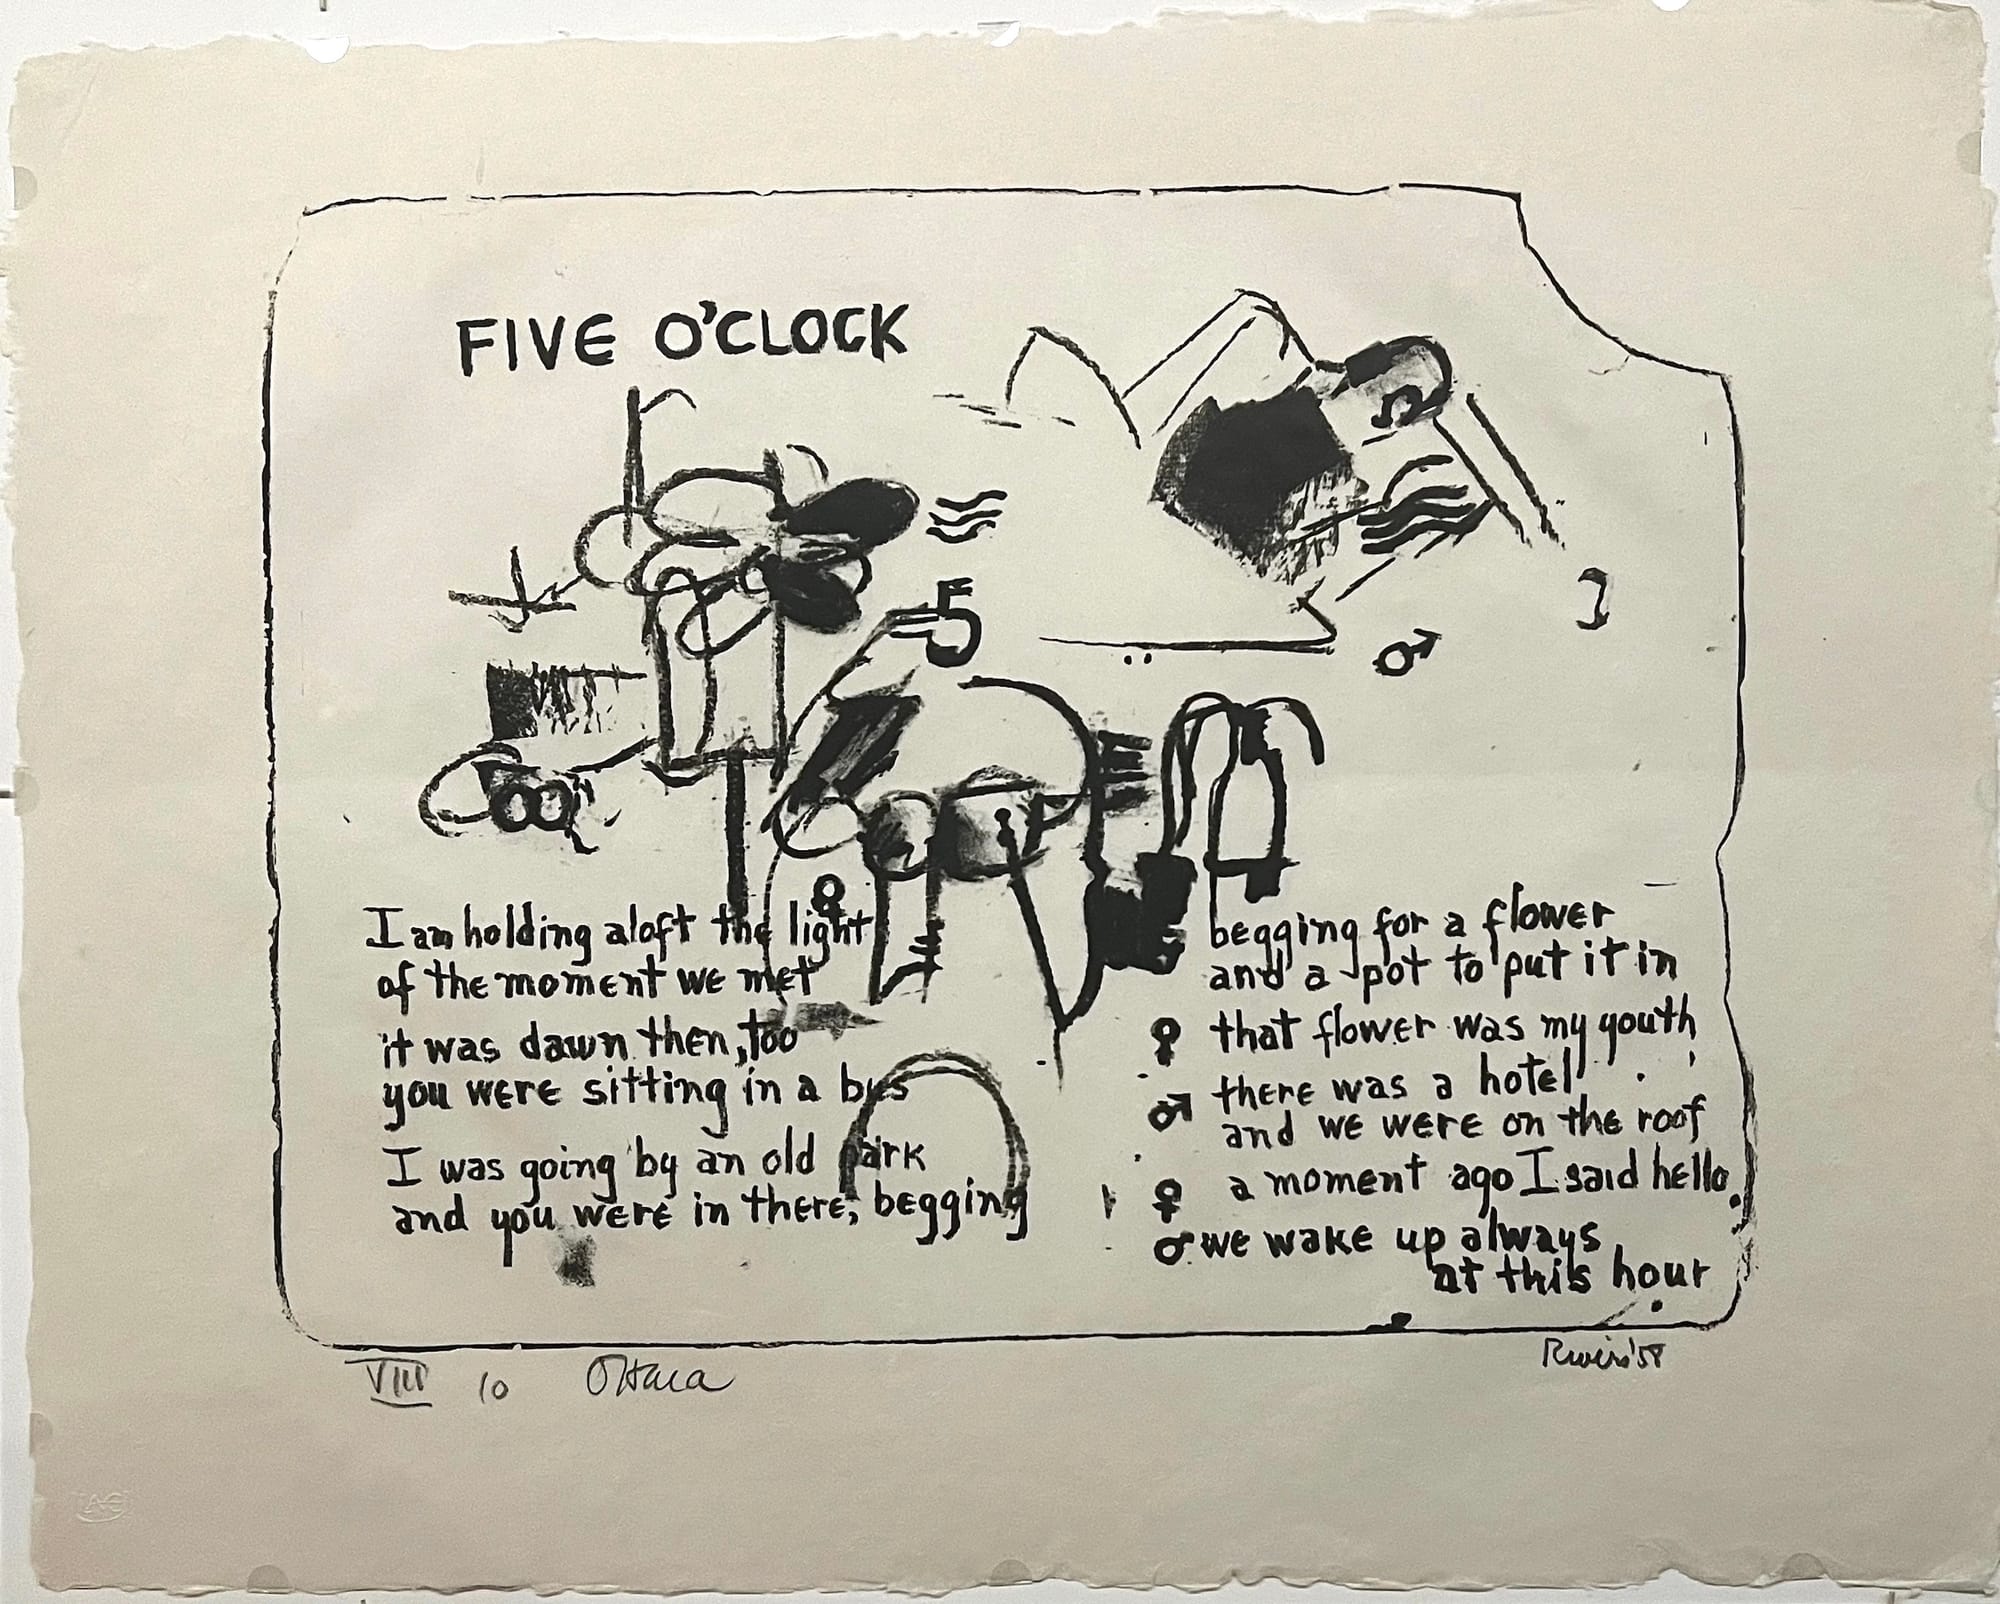 FIVE O'CLOCK
5
5
I am holding aloft the light
of the moment we met
it was dawn then, too
you were sitting in a bus
I was going by an old park
and you were in there, begging
begging for a flower
and a pot to put it in
♀ that flower was my youth
♂ there was a hotel
and we were on the roof
♀ a moment ago I said hello
♂ we wake up always
at this hour
VIII 10 O'Hara
Rivers '58